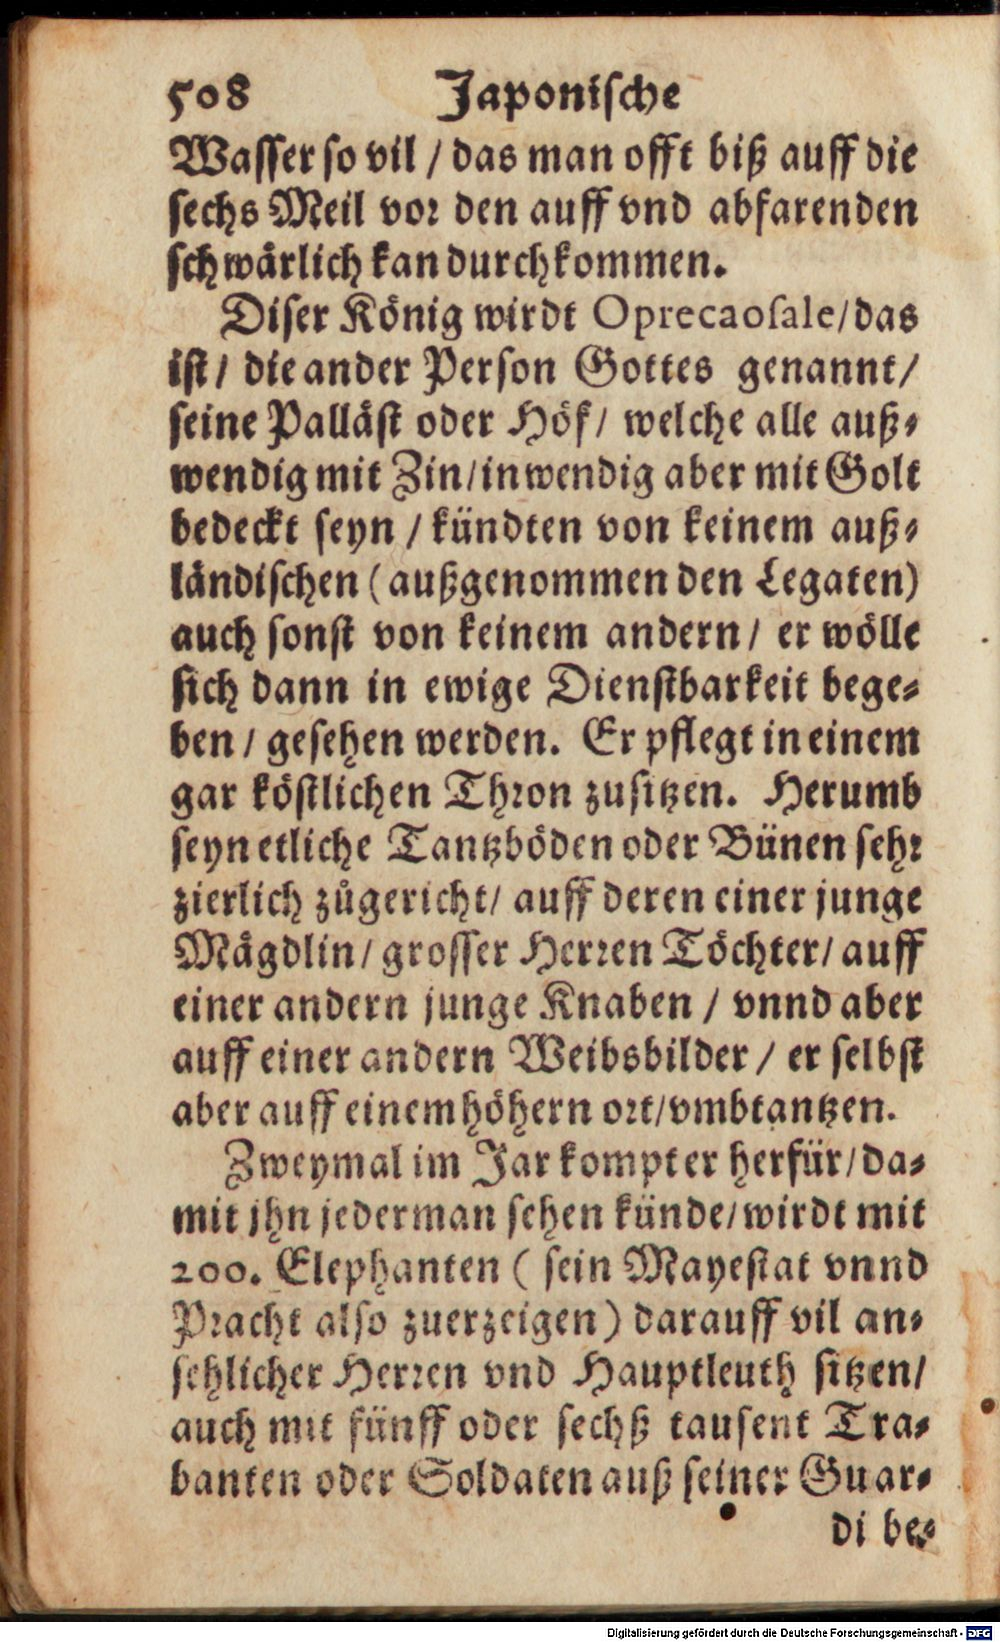 508 Japonische
Wasser so vil / das man offt biß auff die
sechs Meil vor den auff vnd abfarenden
schwärlich kan durchkommen.
Diser König wirdt Oprecaosale/das
ist/ die ander Person Gottes genannt/
seine Palläst oder Höf/ welche alle auß-
wendig mit Zin/inwendig aber mit Golt
bedeckt seyn / kündten von keinem auß-
ländischen (außgenommen den Legaten)
auch sonst von keinem andern/ er wölle
sich dann in ewige Dienstbarkeit bege-
ben / gesehen werden. Er pflegt in einem
gar köstlichen Thron zusitzen. Herumb
seyn etliche Tantzböden oder Bünen sehr
zierlich zůgericht/ auff deren einer junge
Mägdlin/ grosser Herren Töchter/ auff
einer andern junge Knaben / vnnd aber
auff einer andern Weibsbilder / er selbst
aber auff einem höhern ort/vmbtantzen.
Zweymal im Jar kompt er herfür/da-
mit jhn jederman sehen künde/wirdt mit
200. Elephanten ( sein Mayestat vnnd
Pracht also zuerzeigen) darauff vil an-
sehlicher Herren vnd Hauptleuth sitzen/
auch mit fünff oder sechß tausent Tra-
banten oder Soldaten auß seiner Guar-
di be-
Digitalisierung gefördert durch die Deutsche Forschungsgemeinschaft - DFG